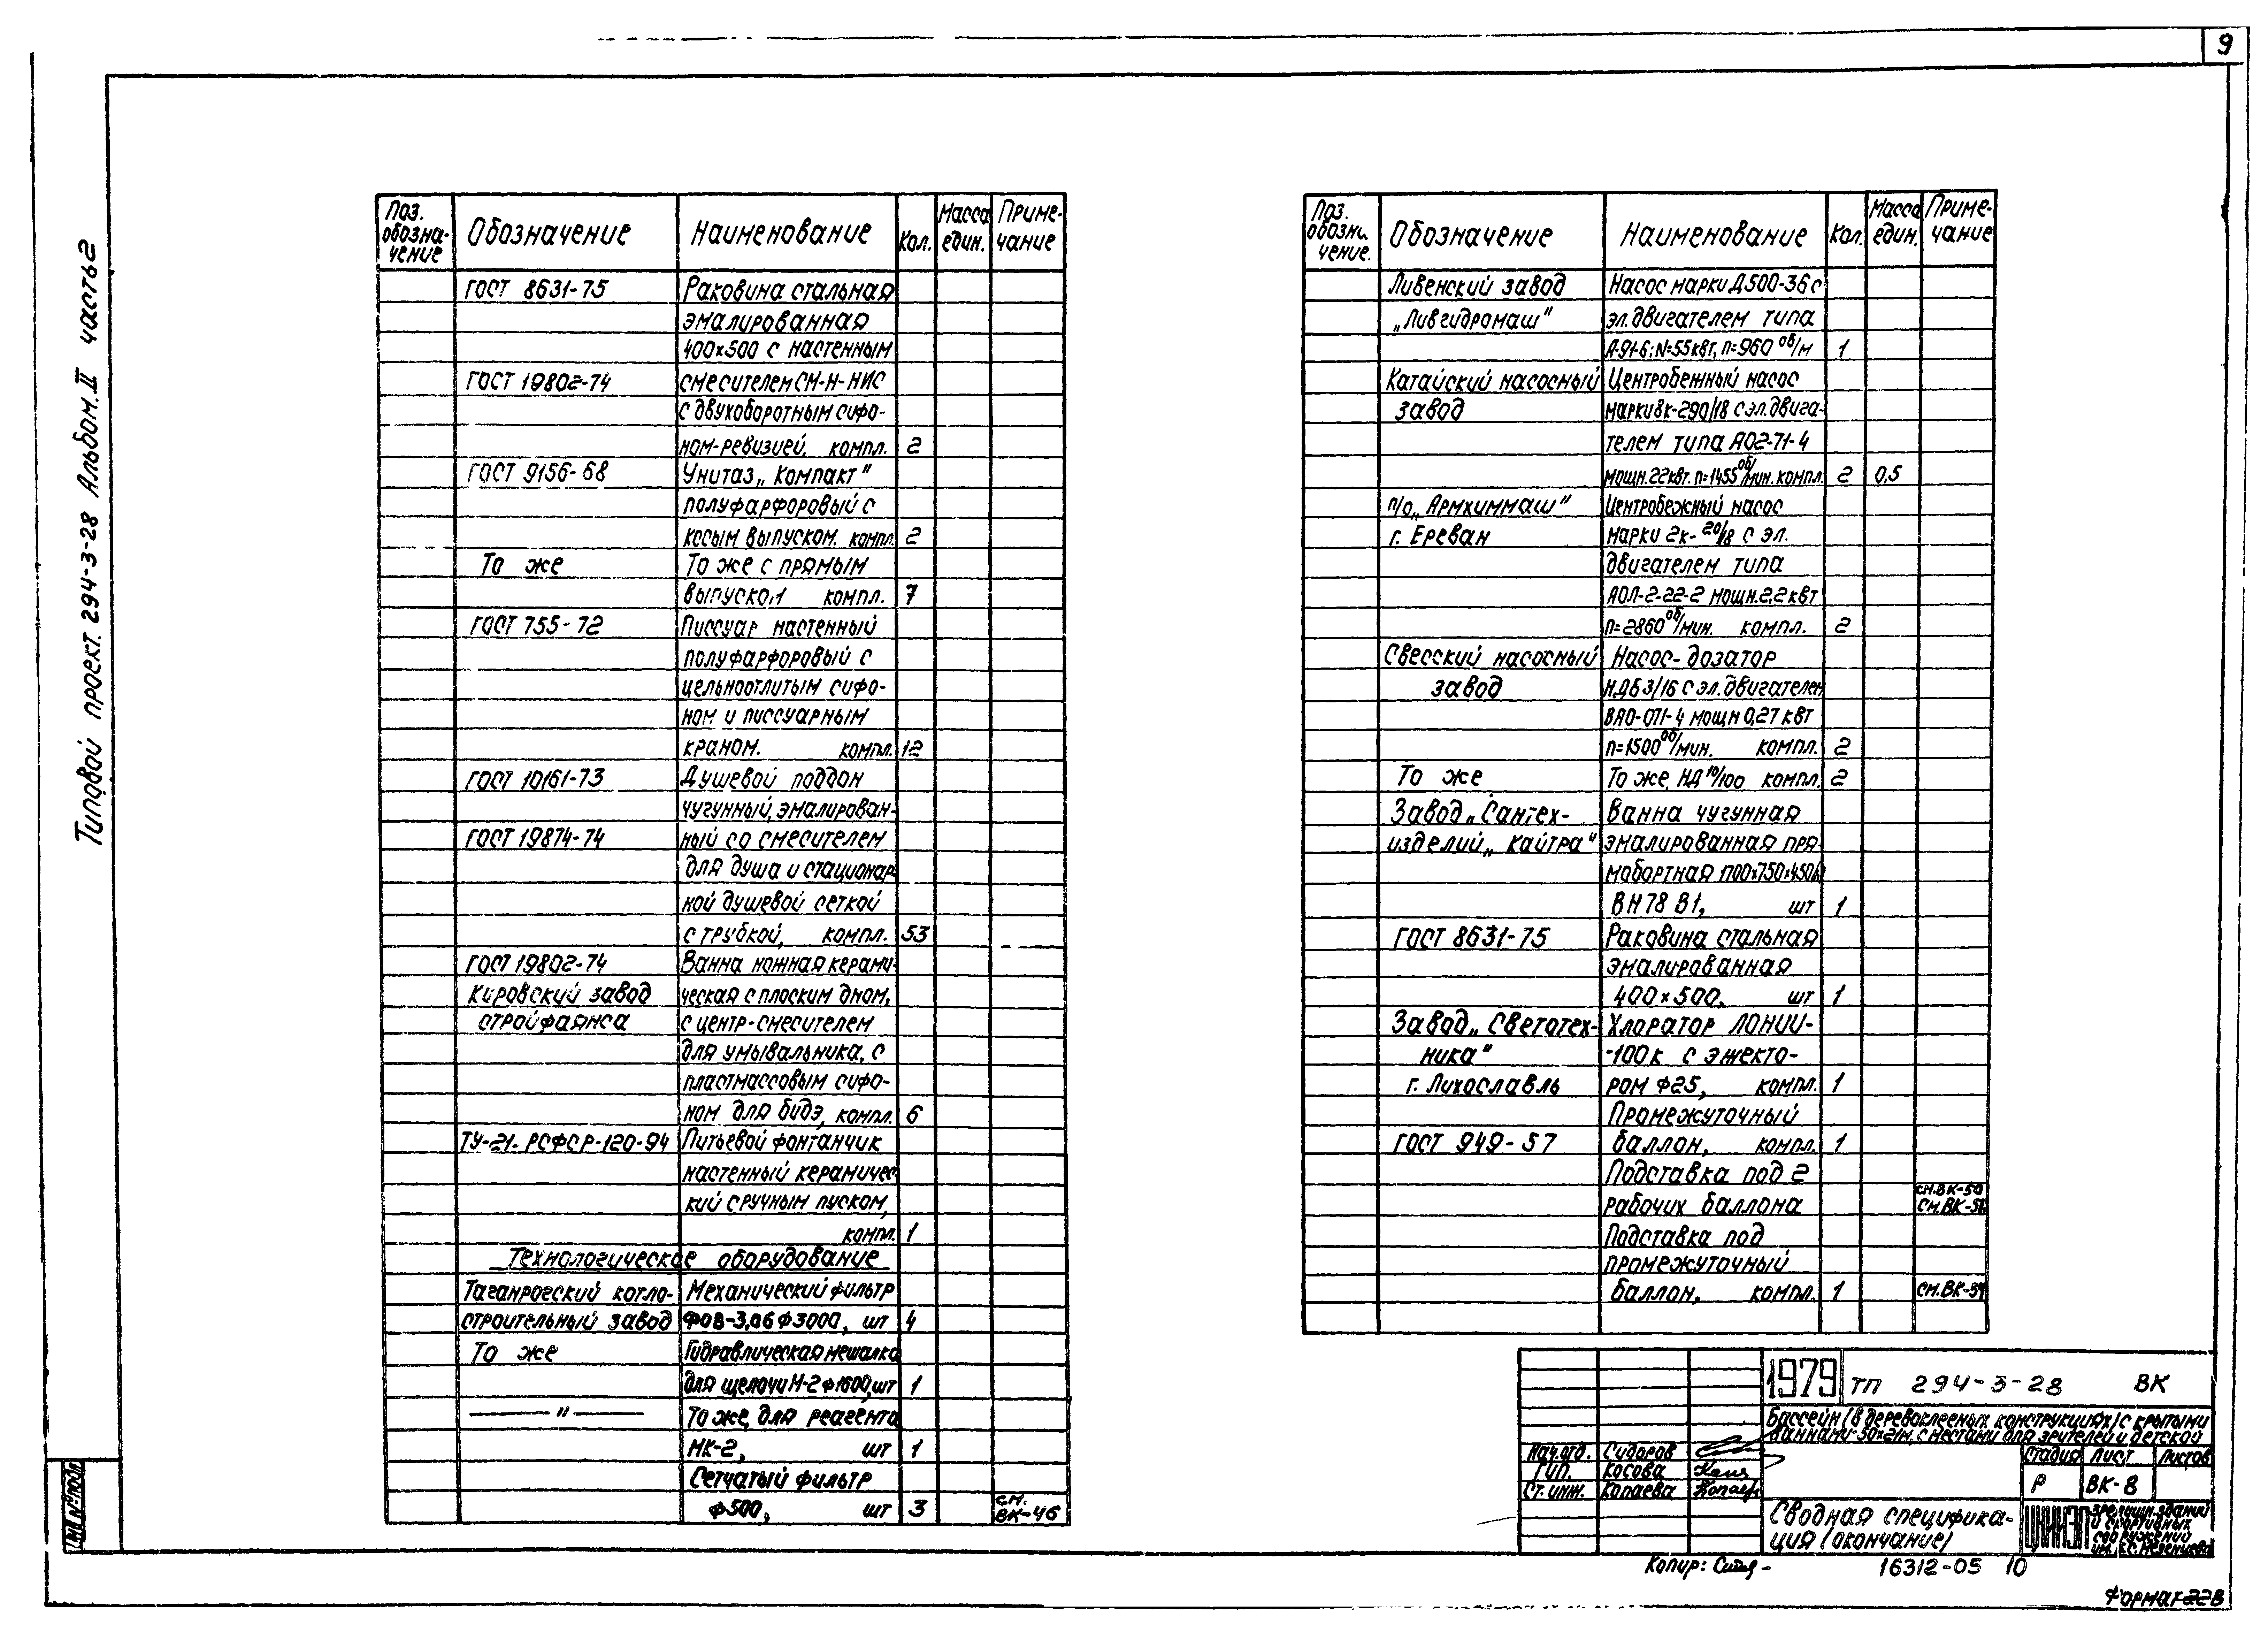 9
Типовой проект 294-3-28 Альбом II часть 2
Поз. обозна-чение Обозначение Наименование Кол. Масса един. Приме-чание
ГОСТ 8631-75 Раковина стальная
эмалированная
400×500 с настенным
ГОСТ 19802-74 смесителем СМ-Н-НИС
с двухоборотным сифо-
ном-ревизией, компл. 2
ГОСТ 9156-68 Унитаз „Компакт"
полуфарфоровый с
косым выпуском. компл. 2
То же То же с прямым
выпуском компл. 7
ГОСТ 755-72 Писсуар настенный
полуфарфоровый с
цельноотлитым сифо-
ном и писсуарным
краном. компл. 12
ГОСТ 10161-73 Душевой поддон
чугунный, эмалирован-
ГОСТ 19874-74 ный со смесителем
для душа и стационар
ной душевой сеткой
с трубкой, компл. 53
ГОСТ 19802-74 Ванна ножная керами-
Кировский завод ческая с плоским дном,
стройфаянса с центр-смесителем
для умывальника, с
пластмассовым сифо-
ном для бидэ, компл. 6
ТУ-21-РСФСР-120-94 Питьевой фонтанчик
настенный керамичес
кий с ручным пуском,
компл. 1
Технологическое оборудование
Таганрогский котло- Механический фильтр
строительный завод ФОВ-3,0б ф3000, шт 4
То же Гидравлическая мешалка
для щелочи М-2 ф1600, шт 1
— " — То же, для реагента
МК-2, шт 1
Сетчатый фильтр
ф500, шт 3 см. ВК-46
Поз. обозна чение. Обозначение Наименование Кол. Масса един. Приме-чание
Ливенский завод Насос марки Д500-36 с
„Ливгидромаш" эл. двигателем типа
А-91-6; N=55квт, n=960 об/м 1
Катайский насосный Центробежный насос
завод марки 8к-290/18 с эл. двига-
телем типа АО2-71-4
мощн. 22квт. n=1455 об/мин. компл. 2 0,5
п/о „Армхиммаш" Центробежный насос
г. Ереван марки 2к-20/18 с эл.
двигателем типа
АОЛ-2-22-2 мощн. 2,2 квт
n=2860 об/мин. компл. 2
Свесский насосный Насос-дозатор
завод НДБ 3/16 с эл. двигателем
ВАО-071-4 мощн 0,27 квт
n=1500 об/мин. компл. 2
То же То же, НД 10/100 компл. 2
Завод „Сантех- Ванна чугунная
изделий „Кайтра" эмалированная пря
мобортная 1700×750×450h
ВН 78 В1, шт 1
ГОСТ 8631-75 Раковина стальная
эмалированная
400×500. шт 1
Завод „Светотех- Хлоратор ЛОНИИ-
ника" -100к с эжекто-
г. Лихославль ром ф25, компл. 1
Промежуточный
ГОСТ 949-57 баллон, компл. 1
Подставка под 2
рабочих баллона см. ВК-50
Подставка под
промежуточный
баллон, компл. 1
1979 ТП 294-3-28 ВК
Бассейн (в деревоклееных конструкциях) с крытыми
ваннами 50×21м, с местами для зрителей и детской
Нач. отд. Сидоров
ГИП. Косова
Ст. инж. Копаева
Стадия Лист Листов
Р ВК-8
Сводная специфика-
ция (окончание)
ЦНИИЭП зрелищн. зданий
и спортивных
сооружений
им. Б.С. Мезенцева
Копир: 16312-05 10
Формат 22В